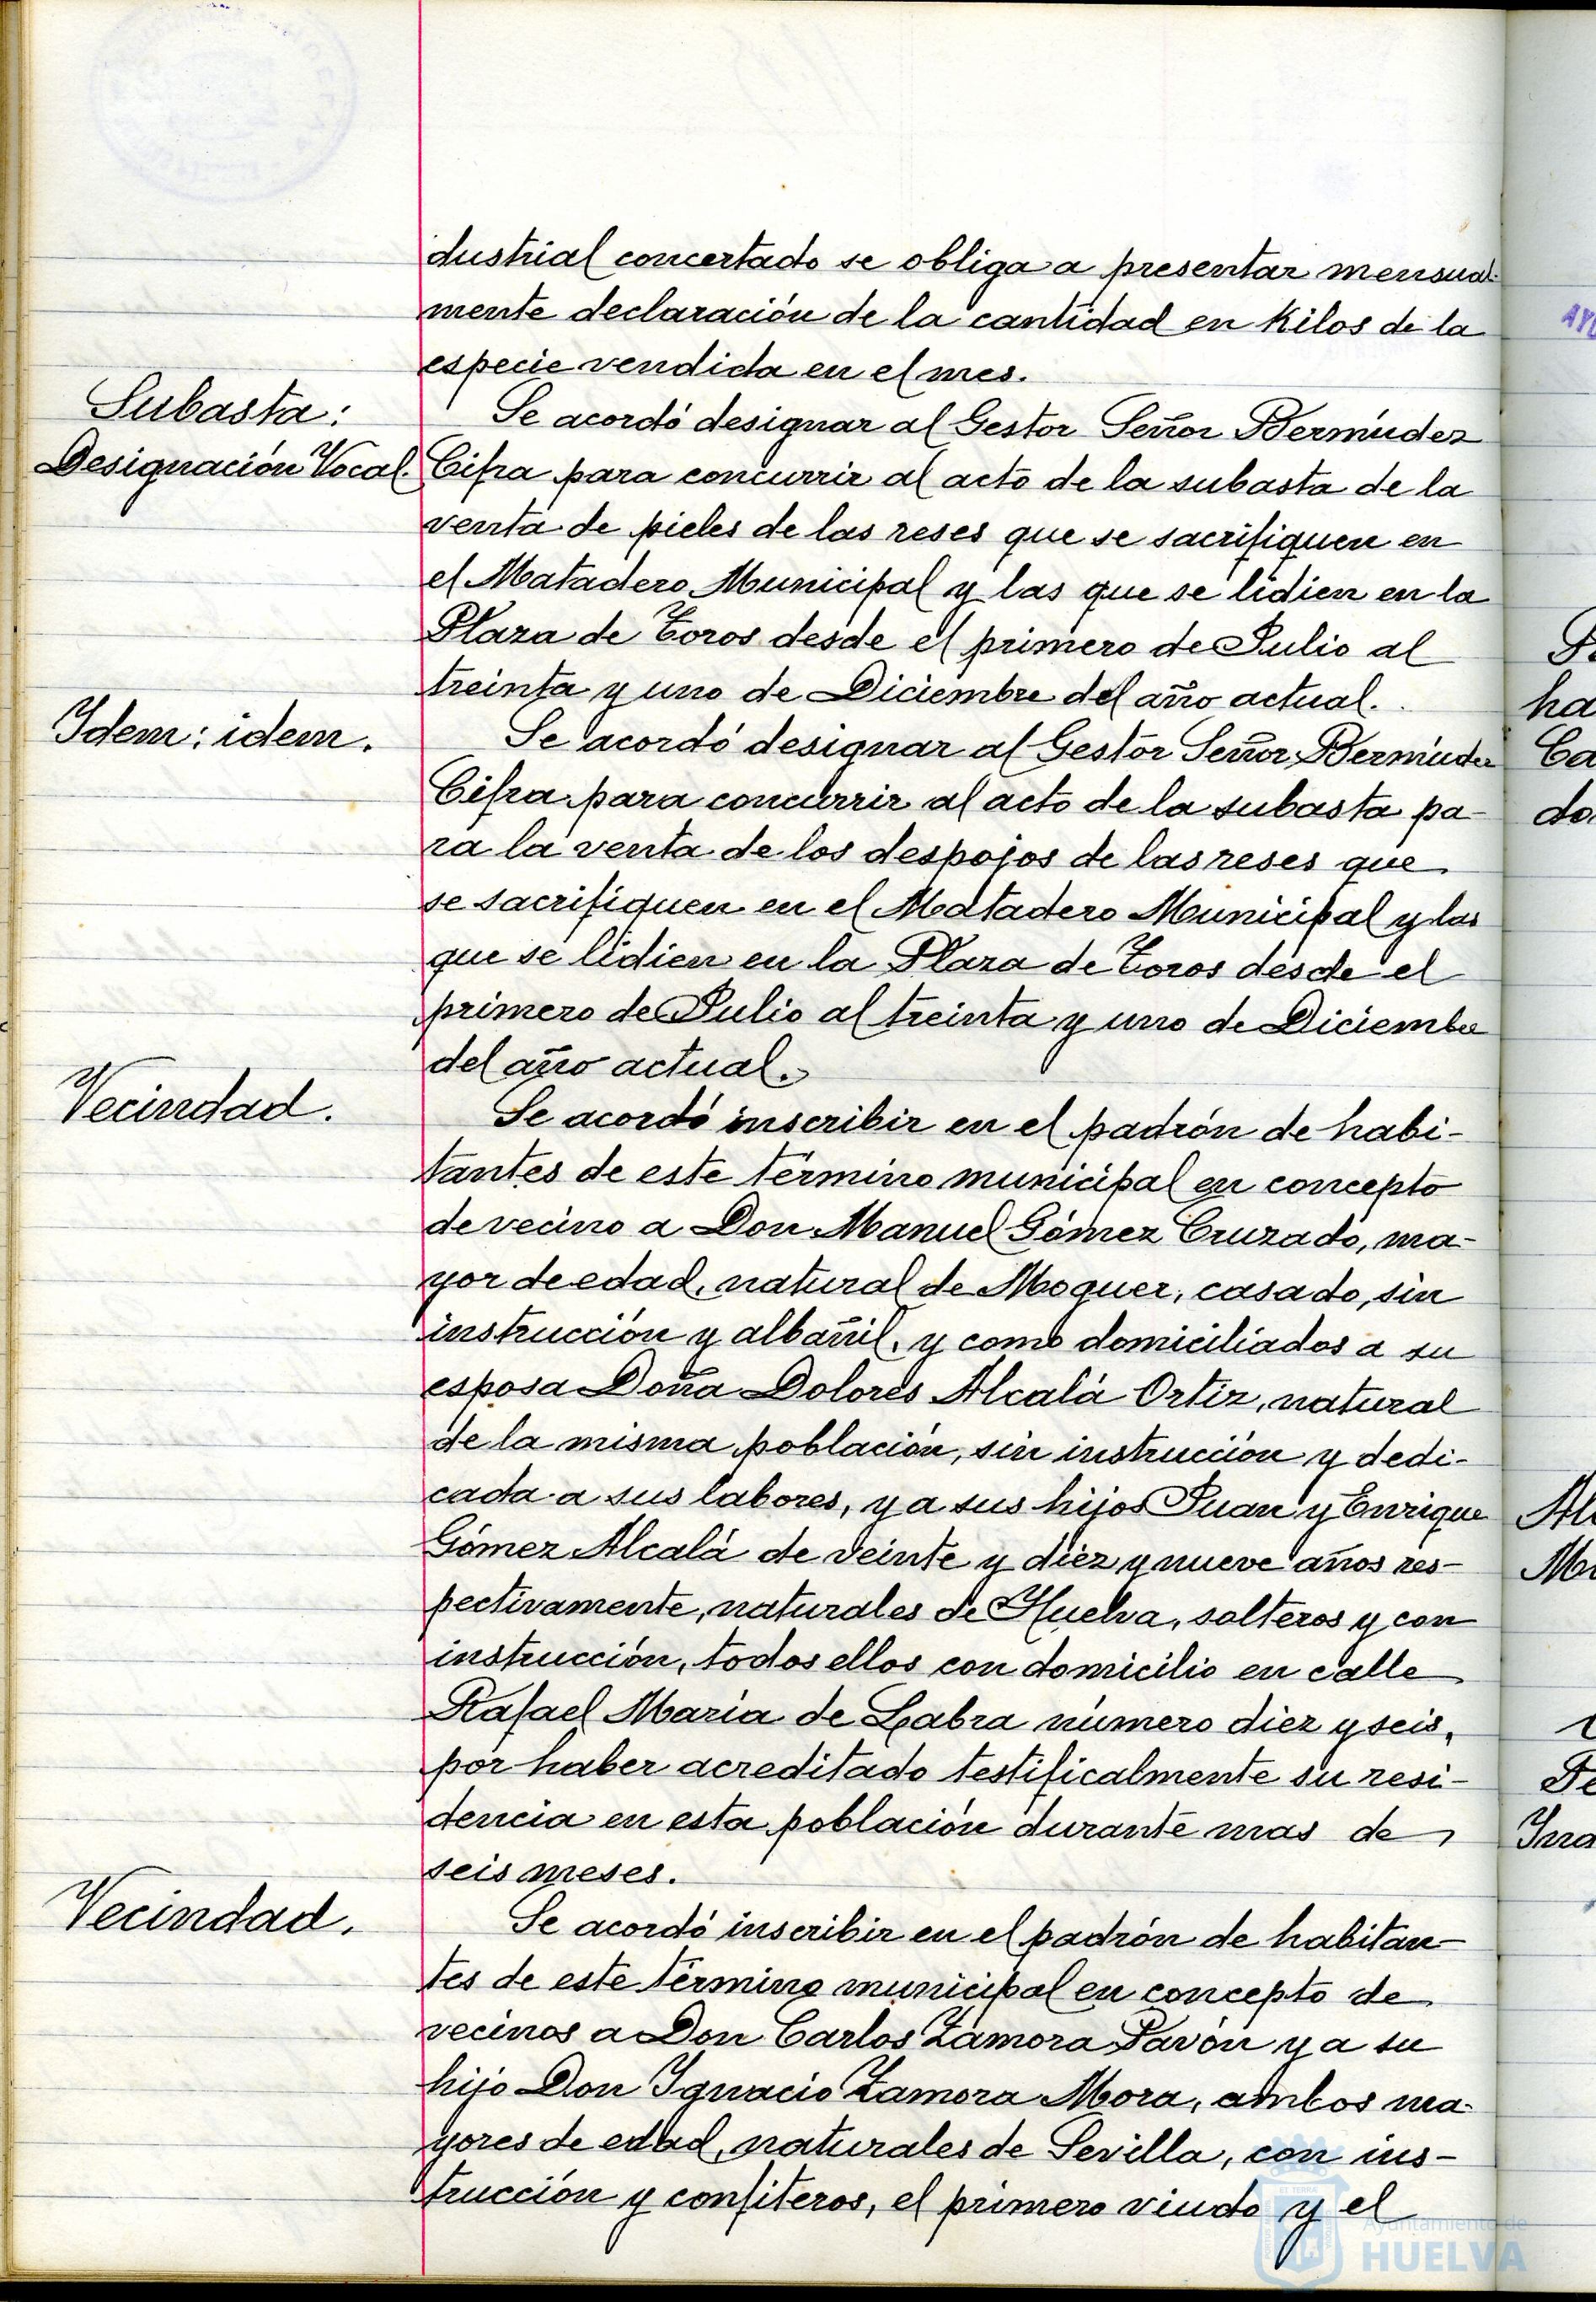 dustrial concertado se obliga a presentar mensual-
mente declaración de la cantidad en Kilos de la
especie vendida en el mes.
Subasta:
Designación Vocal.
Se acordó designar al Gestor Señor Bermúdez
Cifra para concurrir al acto de la subasta de la
venta de pieles de las reses que se sacrifiquen en
el Matadero Municipal y las que se lidien en la
Plaza de Toros desde el primero de Julio al
treinta y uno de Diciembre del año actual.
Idem: idem.
Se acordó designar al Gestor Señor Bermúdez
Cifra para concurrir al acto de la subasta pa-
ra la venta de los despojos de las reses que
se sacrifiquen en el Matadero Municipal y las
que se lidien en la Plaza de Toros desde el
primero de Julio al treinta y uno de Diciembre
del año actual.
Vecindad.
Se acordó inscribir en el padrón de habi-
tantes de este término municipal en concepto
de vecino a Don Manuel Gómez Cruzado, ma-
yor de edad, natural de Moguer, casado, sin
instrucción y albañil, y como domiciliados a su
esposa Doña Dolores Alcalá Ortiz, natural
de la misma población, sin instrucción y dedi-
cada a sus labores, y a sus hijos Juan y Enrique
Gómez Alcalá de veinte y diez y nueve años res-
pectivamente, naturales de Huelva, solteros y con
instrucción, todos ellos con domicilio en calle
Rafael María de Labra número diez y seis,
por haber acreditado testificalmente su resi-
dencia en esta población durante mas de
seis meses.
Vecindad.
Se acordó inscribir en el padrón de habitan-
tes de este término municipal en concepto de
vecinos a Don Carlos Zamora Pavón y a su
hijo Don Ignacio Zamora Mora, ambos ma-
yores de edad, naturales de Sevilla, con ins-
trucción y confiteros, el primero viudo y el
Ayuntamiento de
HUELVA
ha
Ca
do